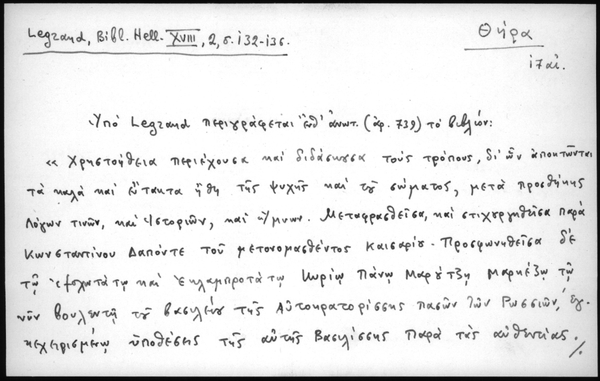 Legrand, Bibl. Hell. XVIII, 2, σ. 132-136.
Θήρα
17 αἰ.
Ὑπό Legrand περιγράφεται ἔνθ' ἀνωτ. (ἀρ. 739) τό βιβλίον:
« Χρηστοήθεια περιέχουσα καί διδάσκουσα τούς τρόπους, δι' ὧν ἀποκτῶνται
τά καλά καί εὔτακτα ἤθη τῆς ψυχῆς καί τοῦ σώματος, μετά προσθήκης
λόγων τινῶν, καί Ἱστοριῶν, καί Ὕμνων. Μεταφρασθεῖσα, καί στιχουργηθεῖσα παρά
Κωνσταντίνου Δαπόντε τοῦ μετονομασθέντος Καισαρίου. Προσφωνηθεῖσα δέ
τῷ καί ἐκλαμπροτάτῳ Κυρίῳ Πάνῳ Μαρούτζῃ Μαρκέζῳ τῷ
νῦν βουλευτῇ τοῦ βασιλείου τῆς Αὐτοκρατορίσσης πασῶν τῶν Ρωσσιῶν, ἐγ-
κεχειρισμένῳ ὑποθέσεις τῆς αὐτῆς Βασιλίσσης παρά τάς αὐθεντίας.